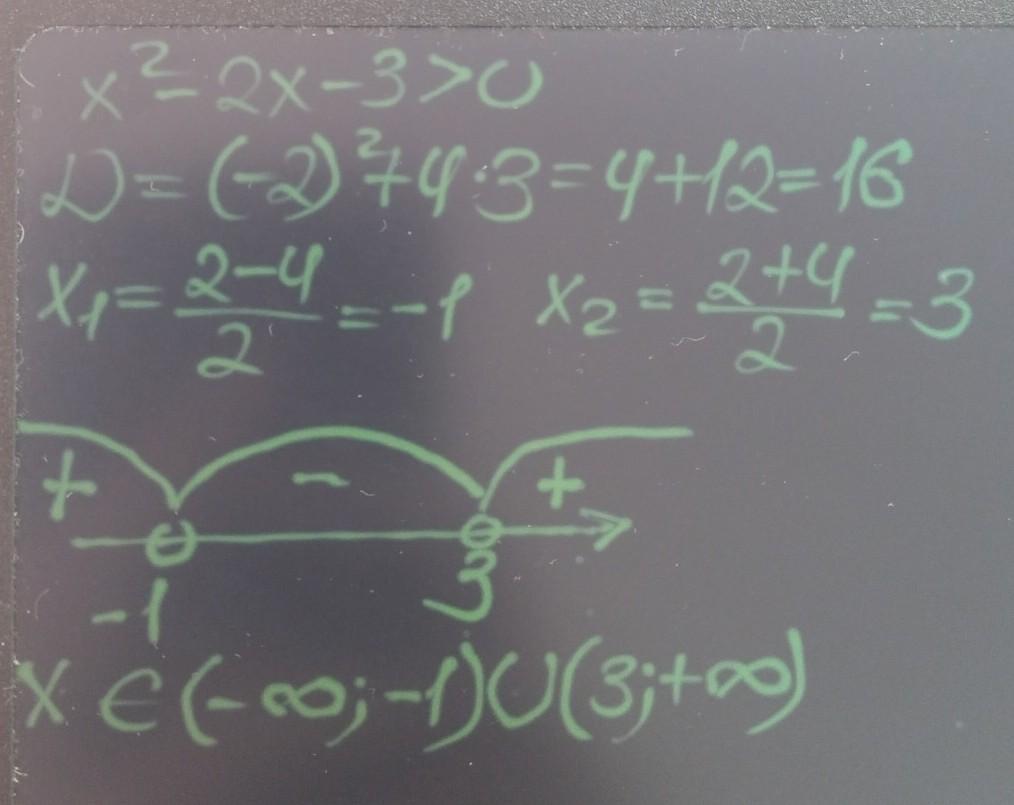 x² - 2x - 3 > 0
D = (-2)² + 4·3 = 4 + 12 = 16
x₁ = (2-4)/2 = -1 x₂ = (2+4)/2 = 3
+ - +
-1 3
x ∈ (-∞; -1) ∪ (3; +∞)